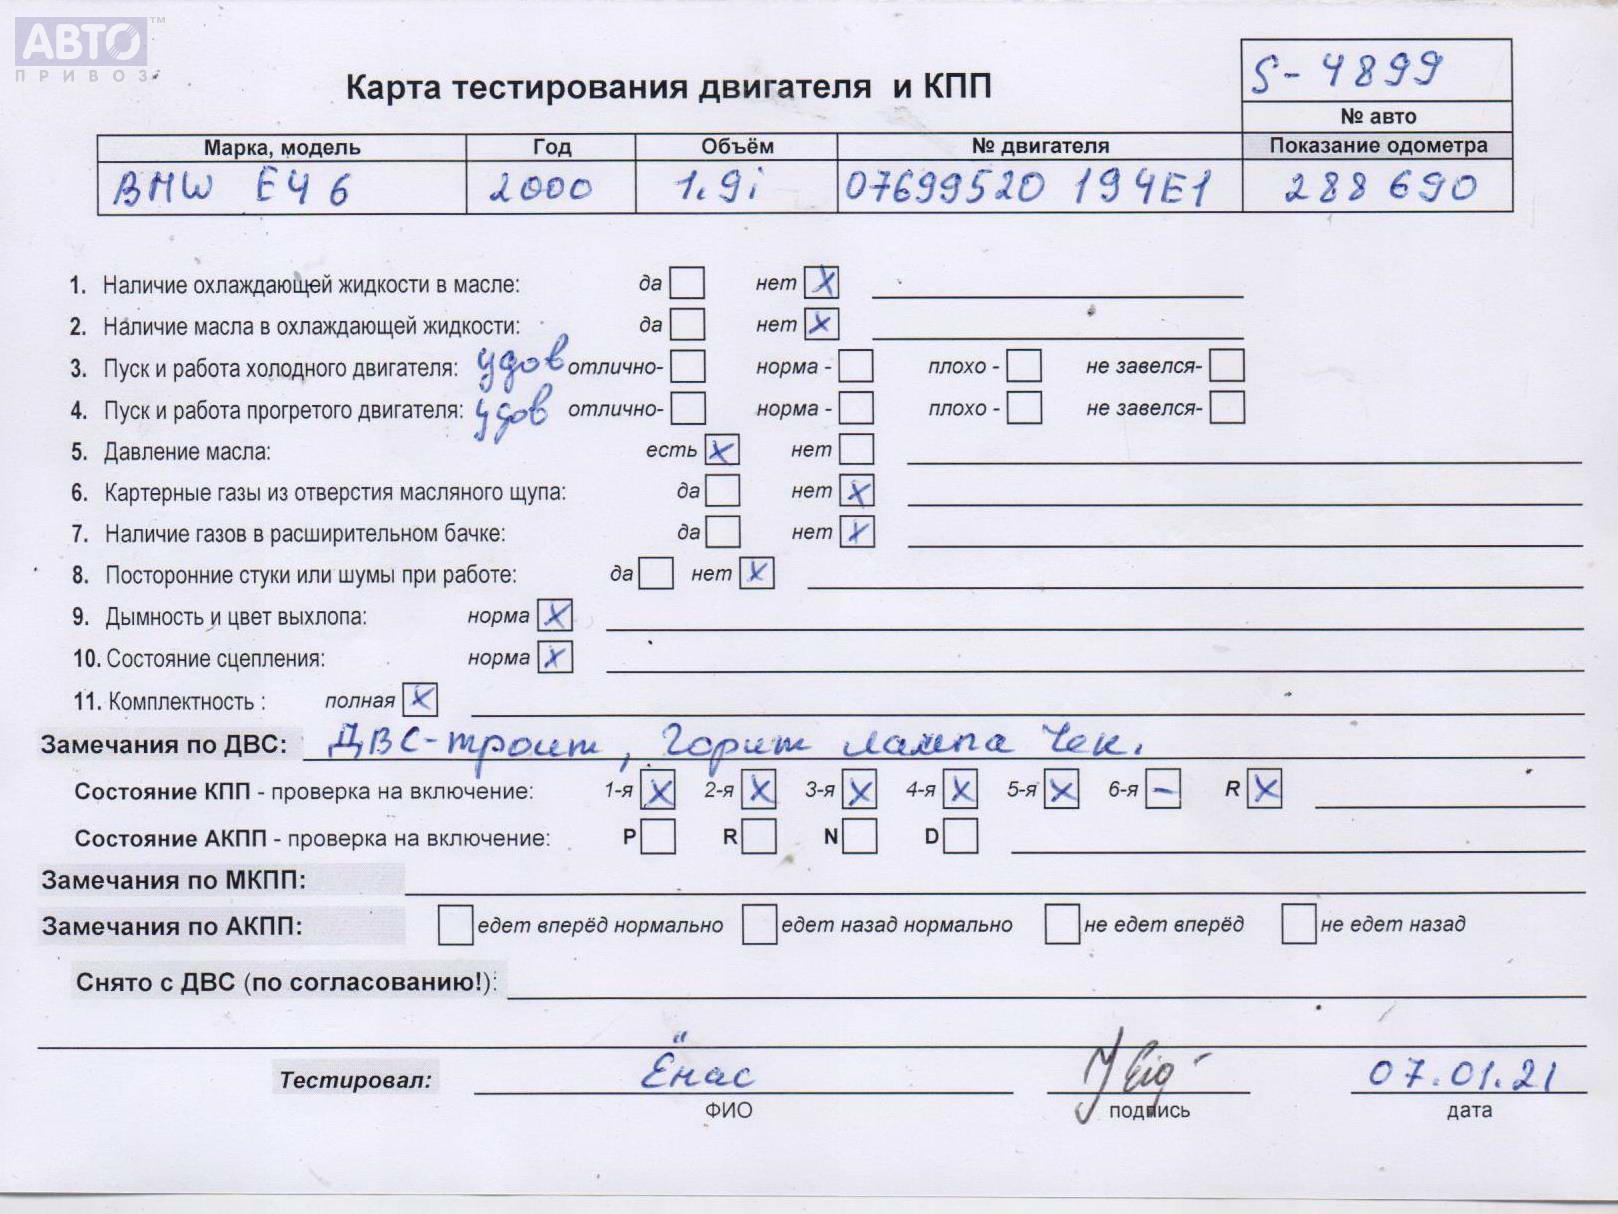 АВТО™
ПРИВОЗ
Карта тестирования двигателя и КПП
S-4899
№ авто
Марка, модель Год Объём № двигателя Показание одометра
BMW E46 2000 1.9i 07699520 194E1 288 690
1. Наличие охлаждающей жидкости в масле: да нет X
2. Наличие масла в охлаждающей жидкости: да нет X
3. Пуск и работа холодного двигателя: удов отлично- норма - плохо - не завелся-
4. Пуск и работа прогретого двигателя: удов отлично- норма - плохо - не завелся-
5. Давление масла: есть X нет
6. Картерные газы из отверстия масляного щупа: да нет X
7. Наличие газов в расширительном бачке: да нет X
8. Посторонние стуки или шумы при работе: да нет X
9. Дымность и цвет выхлопа: норма X
10. Состояние сцепления: норма X
11. Комплектность : полная X
Замечания по ДВС: ДВС-троит, Горит лампа Чек.
Состояние КПП - проверка на включение: 1-я X 2-я X 3-я X 4-я X 5-я X 6-я – R X
Состояние АКПП - проверка на включение: P R N D
Замечания по МКПП:
Замечания по АКПП: едет вперёд нормально едет назад нормально не едет вперёд не едет назад
Снято с ДВС (по согласованию!):
Тестировал: Ёнас 07.01.21
ФИО подпись дата